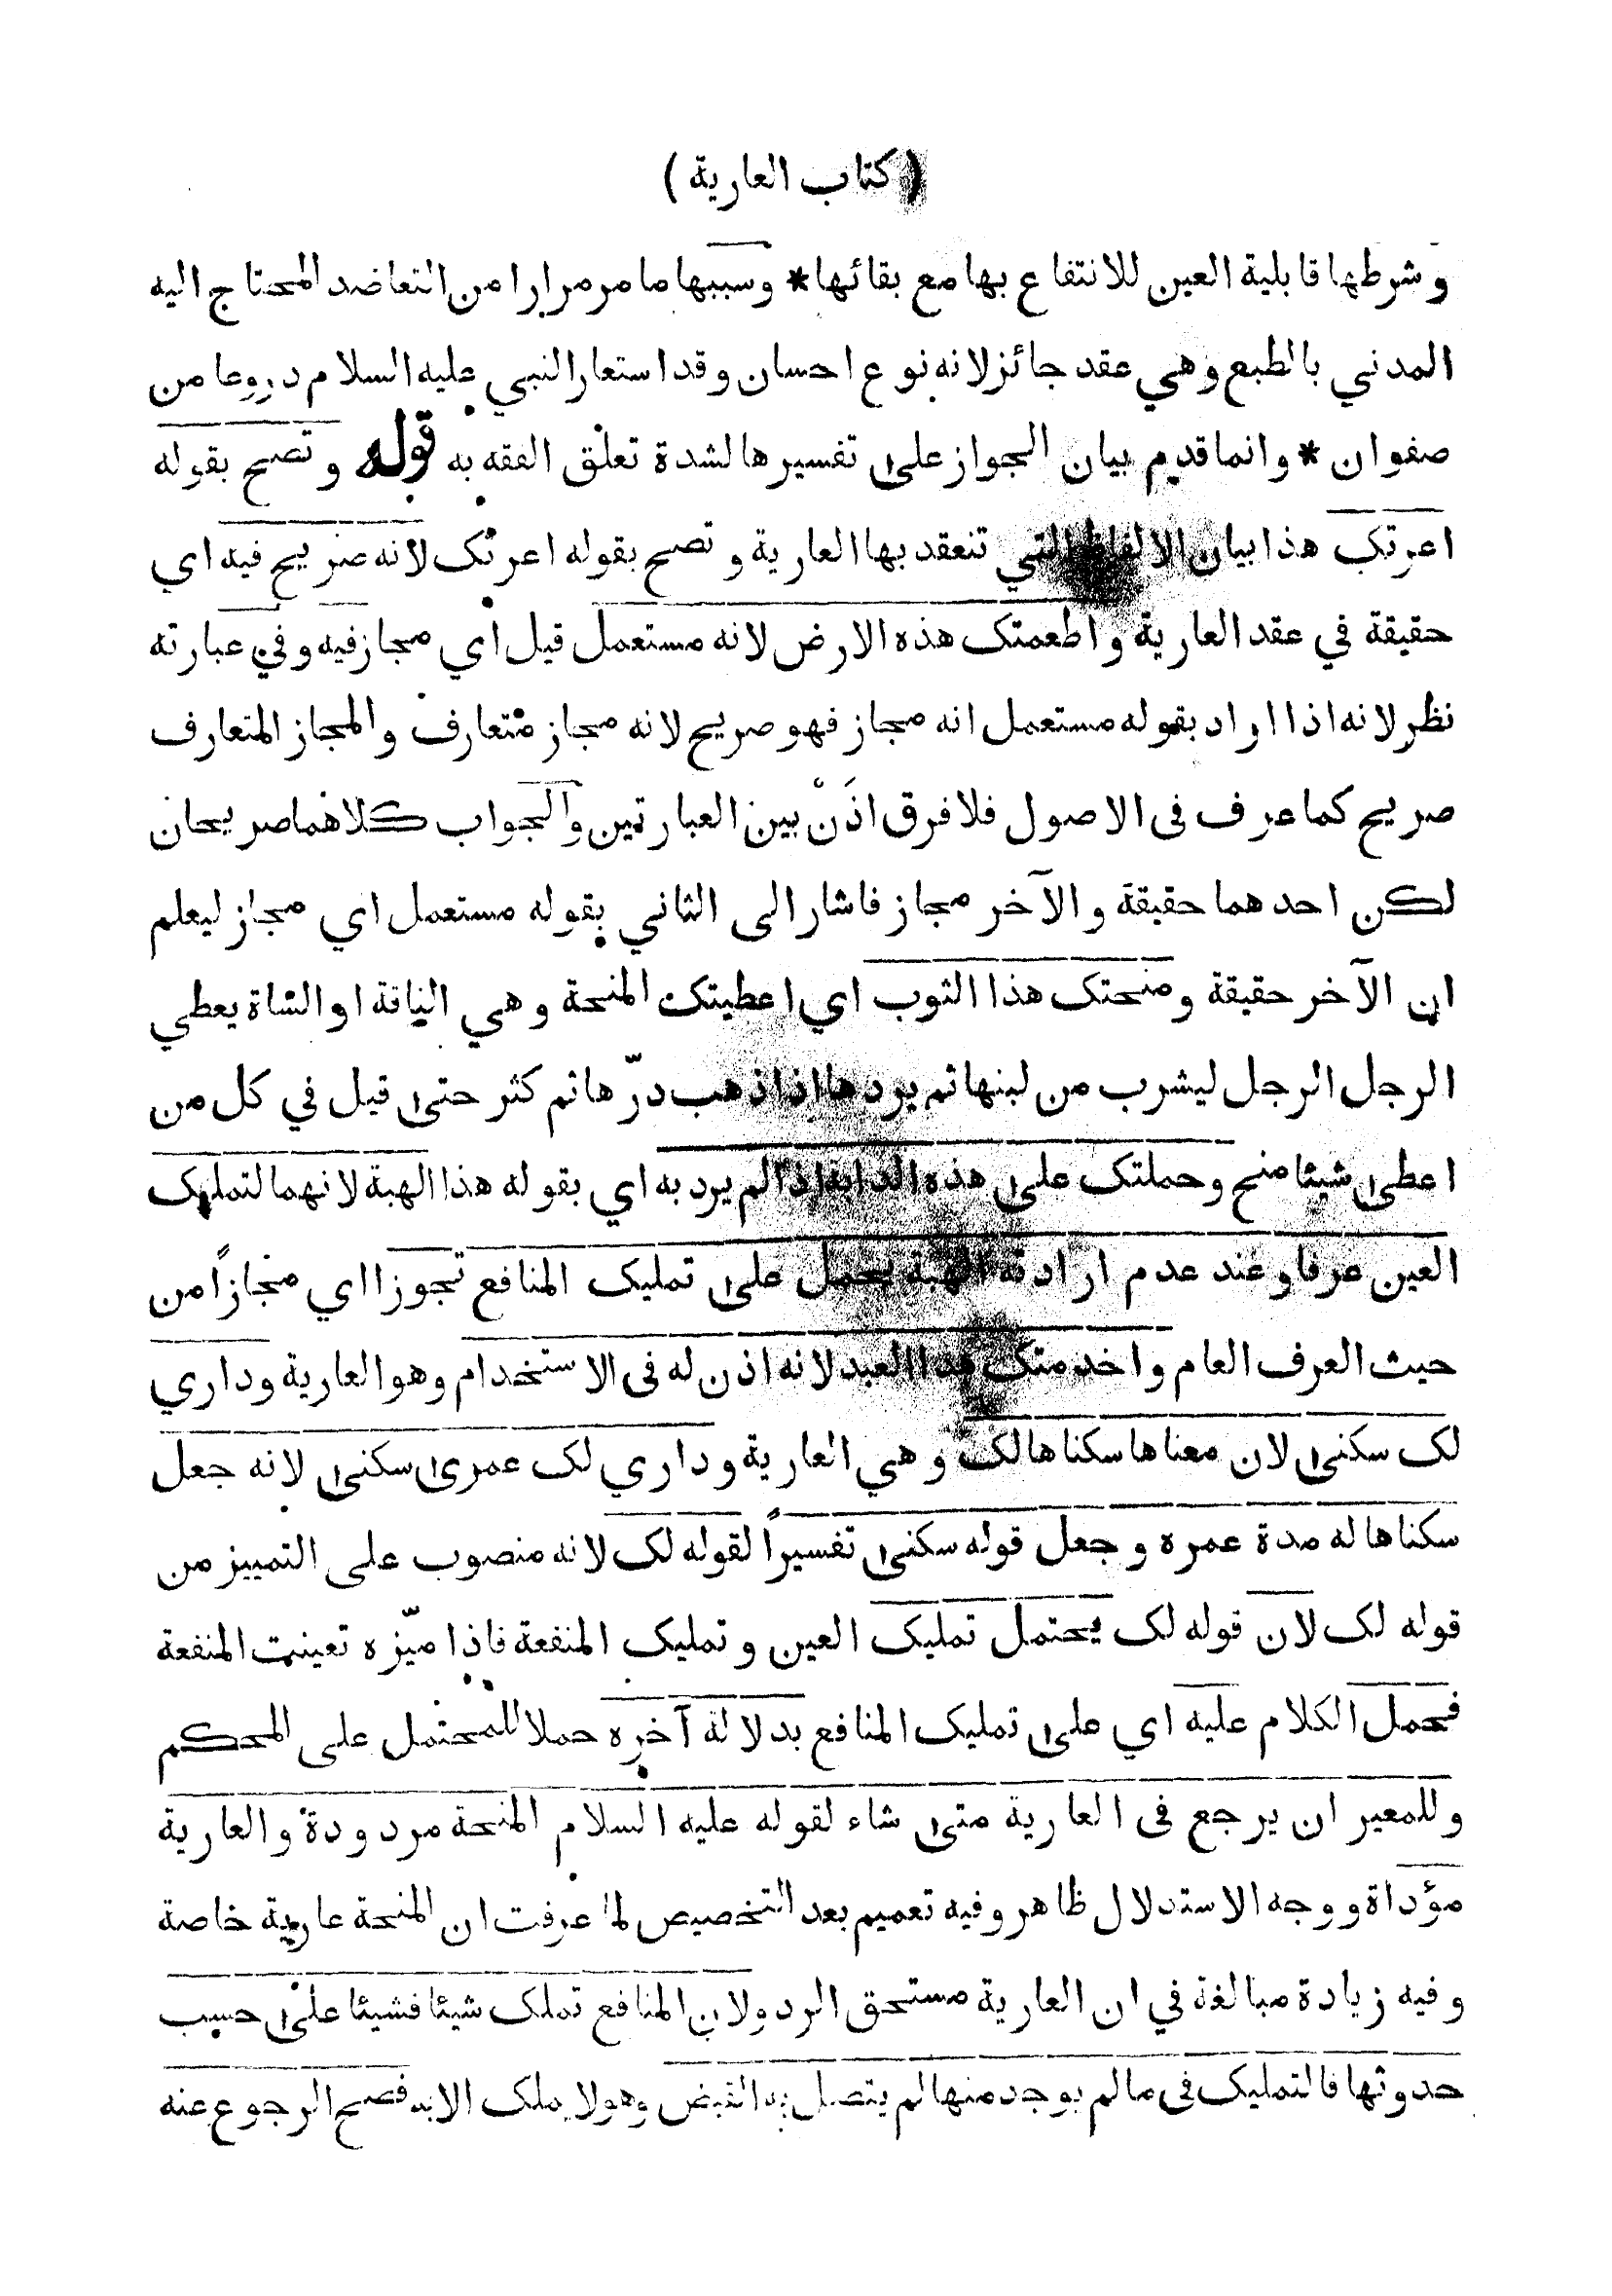 ( كتاب العارية )
وشرطها قابلية العين للانتفاع بها مع بقائها * وسببها ما مر مرارا من التعاضد المحتاج اليه
المدني بالطبع وهي عقد جائز لانه نوع احسان وقد استعار النبي عليه السلام دروعا من
صفوان * وانما قدم بيان الجواز على تفسيرها لشدة تعلق الفقه به قوله وتصح بقوله
اعرتك هذا بيان الالفاظ التي تنعقد بها العارية وتصح بقوله اعرتك لانه صريح فيه اي
حقيقة في عقد العارية واطعمتك هذه الارض لانه مستعمل قيل اي مجاز فيه وفي عبارته
نظر لانه اذا اراد بقوله مستعمل انه مجاز فهو صريح لانه مجاز متعارف والمجاز المتعارف
صريح كما عرف فى الاصول فلا فرق اذَنْ بين العبارتين والجواب كلاهما صريحان
لكن احدهما حقيقة والآخر مجاز فاشار الى الثاني بقوله مستعمل اي مجاز ليعلم
ان الآخر حقيقة ومنحتك هذا الثوب اي اعطيتك المنحة وهي الناقة او الشاة يعطي
الرجل الرجل ليشرب من لبنها ثم يردها اذا ذهب درّها ثم كثر حتى قيل في كل من
اعطى شيئا منح وحملتك على هذه الدابة اذا لم يرد به اي بقوله هذا الهبة لانهما لتمليك
العين عرفا وعند عدم ارادته الهبة يحمل على تمليك المنافع تجوزا اي مجازاً من
حيث العرف العام واخدمتك هذا العبد لانه اذن له فى الاستخدام وهو العارية وداري
لك سكنى لان معناها سكناها لك وهي العارية وداري لك عمرى سكنى لانه جعل
سكناها له مدة عمره وجعل قوله سكنى تفسيراً لقوله لك لانه منصوب على التمييز من
قوله لك لان قوله لك يحتمل تمليك العين وتمليك المنفعة فاذا ميّزه تعينت المنفعة
فحمل الكلام عليه اي على تمليك المنافع بدلالة آخره حملا للمحتمل على المحكم
وللمعير ان يرجع فى العارية متى شاء لقوله عليه السلام المنحة مردودة والعارية
مؤداة ووجه الاستدلال ظاهر وفيه تعميم بعد التخصيص لما عرفت ان المنحة عارية خاصة
وفيه زيادة مبالغة في ان العارية مستحق الرد ولان المنافع تملك شيئا فشيئا على حسب
حدوثها فالتمليك فى ما لم يوجد منها لم يتصل به القبض وهو لا يملك الا به فصح الرجوع عنه